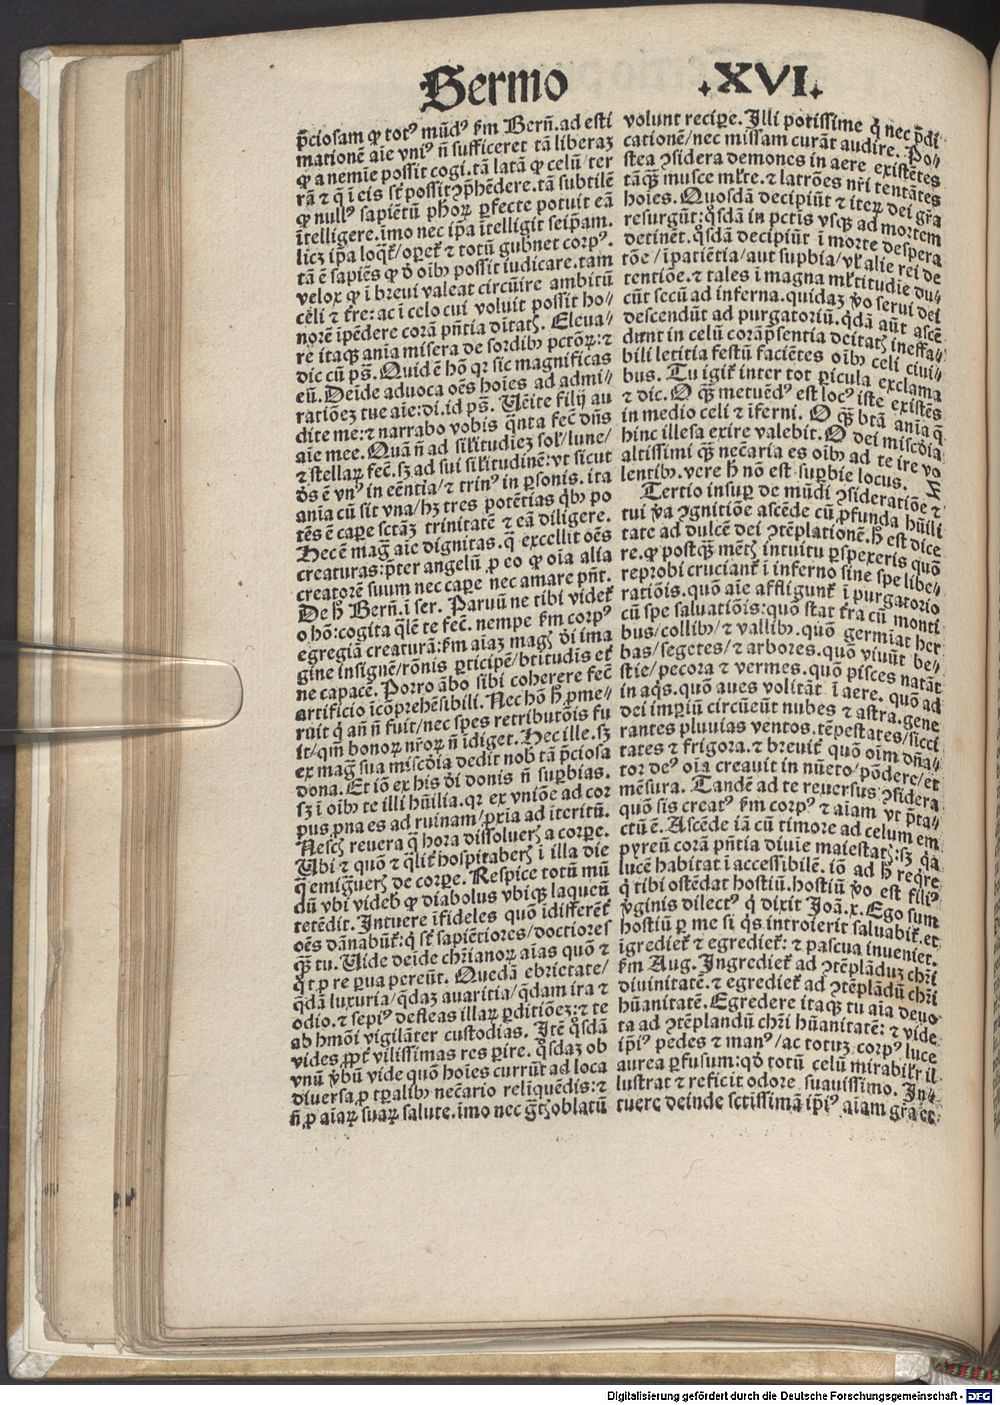 Sermo .XVI.
p̄ciosam ꝙ totꝰ mūdꝰ ẜm Berñ. ad esti
mationē aīe vniꝰ ñ sufficeret tā liberaꝫ
ꝙ a nemīe possit cogi. tā latā ꝙ celū/ ter
rā ⁊ q̄ ī eis sūt possit ꝯp̄hēdere. tā subtilē
ꝙ nullꝰ sapiētū phoꝝ ꝑfecte potuit eā
ītelligere. īmo nec ip̄a ītelligit seip̄am.
licꝫ ip̄a loq̄t̄/ oꝑet̄ ⁊ totū gubnet corpꝰ.
tā ē sapiēs ꝙ ḋ oībꝰ possit iudicare. tam
velox ꝙ ī breui valeat circūire ambitū
celi ⁊ t̄re: ac ī celo cui voluit possit ho⸗
norē īpēdere corā pñtia dītatꝭ. Eleua⸗
re itaqꝫ anīa misera de sordibꝰ pctōꝝ: ⁊
dic cū pṡ. Quid ē hō qꝛ sic magnificas
eū. Deīde aduoca oēs hoīes ad admi⸗
ratiōeꝫ tue aīe: di. id pṡ. Uēite filij au
dite me: ⁊ narrabo vobis q̄nta fec̄ dñs
aīe mee. Quā ñ ad sil̄itudiēꝫ sol̄/ lune/
⁊ stellaꝝ fec̄. sꝫ ad sui sil̄itudinē: vt sicut
ḋs ē vnꝰ in eēntia/ ⁊ trinꝰ in ꝑsonis. ita
anīa cū sit vna/ hꝫ tres potētias q̄bꝰ po
tēs ē capere sctāꝫ trinitatē ⁊ eā diligere.
Hec ē maḡ aīe dignitas. q̄ excellit oēs
creaturas: p̄ter angelū ꝓ eo ꝙ oīa alia
creatorē suum nec caꝑe nec amare pñt.
De h̄ Berñ. ī ser. Paruū ne tibi videt̄
o hō: cogita q̄lē te fec̄. nempe ẜm corpꝰ
egregiā creaturā: ẜm aīaꝫ magꝭ ḋi ima
gine insignē/ rōnis ꝑticipē/ btītudīs et̄
ne capacē. Porro ābo sibi coherere fec̄
artificio īcōprehēsibili. Nec hō h̄ ꝓme⸗
ruit q̇ añ ñ fuit/ nec spes retributōis fu
it/ qm̄ bonoꝝ nr̄oꝝ ñ īdiget. Hec ille. sꝫ
ex maḡ sua mīscḋia dedit nob̄ tā p̄ciosa
dona. Et iō ex his ḋi donis ñ suꝑbias.
sꝫ ī oībꝰ te illi hūilia. qꝛ ex vniōe ad cor
pus ꝓna es ad ruinam/ ꝓxīa ad īteritū.
Nescꝭ reuera q̄ hora dissoluerꝭ a corpore.
Ubi ⁊ quō ⁊ q̄lit̄ hospitaberꝭ ī illa die
q̄ emiḡuerꝭ de corpore. Respice totū mū
dū vbi videbꝭ ꝙ diabolus vbiqꝫ laqueū
tetēdit. Intuere īfideles quō īdifferēt̄
oēs dānabūt̄: q̇ sūt sapiētiores/ doctiores
q̄ꝫ tu. Uide deīde chr̄ianoꝝ aīas quō ⁊
q̄t ꝓ re ꝑua pereūt. Quedā ebrietate/
q̄dā luxuria/ q̄daꝫ auaritia/ q̄dam ira ⁊
odio. ⁊ sepiꝰ defleas illaꝝ ꝑditiōeꝫ: ⁊ te
ab hmōi vigilāter custodias. Itē q̇sdā
vides ꝓpt̄ vilissimas res ꝑire. q̇sdaꝫ ob
vnū v̇bū vide quō hoīes currūt ad loca
diuersa, ꝓ tꝑalibꝰ necārio relīquēdis: ⁊
ñ ꝓ aīaꝝ suaꝝ salute. īmo nec ḡtꝭ oblatū
volunt recipe. Illi potissime q̇ nec p̄di
cationē/ nec missam curāt audire. Po⸗
stea ꝯsidera demones in aere existētes
tāq̄ꝫ musce ml̄te. ⁊ latrōes nr̄i tentātes
hoīes. Quosdā decipiūt ⁊ iteꝝ dei gr̄a
resurgūt: q̇sdā in pctīs vsqꝫ ad mortem
detinēt. q̇sdā decipiūt ī morte despera
tōe/ īpatiētia/ aut suꝑbia/ vl̄ alie rei de
tentiōe. ⁊ tales ī magna ml̄titudīe du⸗
cūt secū ad inferna. quidaꝫ v̇o serui dei
descendūt ad purgatoriū. q̇dā aūt ascē
dunt in celū corā p̄sentia deitatꝭ ineffa⸗
bili letitia festū faciētes oībꝰ celi ciui⸗
bus. Tu igit̄ inter tot ꝑicula exclama
⁊ dic. O q̄ꝫ metuēdꝰ est locꝰ iste existēs
in medio celi ⁊ īferni. O q̄ꝫ btā anīa q̄
hinc illesa exire valebit. O dei mīscḋia
altissimi q̄ꝫ necāria es oībꝰ ad te ire vo
lentibꝰ. vere h̄ nō est suꝑbie locus.
Tertio insuꝑ de mūdi ꝯsideratiōe ⁊
tui v̇a ꝯgnitiōe ascēde cū ꝓfunda hūili
tate ad dulcē dei ꝯtēplationē. h̄ est dice
re. ꝙ postq̄ꝫ mētꝭ intuitu ꝑspexeris quō
reprobi cruciant̄ ī inferno sine spe libe⸗
ratiōis. quō aīe affligunt̄ ī purgatorio
cū spe saluatiōis: quō stat t̄ra cū monti
bus/ collibꝰ/ ⁊ vallibꝰ. quō germīat her
bas/ segetes/ ⁊ arbores. quō viuūt be⸗
stie/ pecora ⁊ vermes. quō pisces natāt
in aq̇s. quō aues volitāt ī aere. quō ad
dei imꝑiū circūeūt nubes ⁊ astra. gene
rantes pluuias ventos. tēpestates/ sicci
tates ⁊ frigora. ⁊ breuit̄ quō oīm dñā⸗
tor deꝰ oīa creauit in nūero/ pōdere/ et
mēsura. Tandē ad te reuersus ꝯsidera
quō sis creatꝰ ẜm corpꝰ ⁊ aīam vt p̄ta⸗
ctū ē. Ascēde iā cū timore ad celum em
pyreū corā pñtia diuīe maiestatꝭ: sꝫ q̇a
lucē habitat īaccessibilē. iō ad h̄ req̇re
q̇ tibi ostēdat hostiū. hostiū v̇o est filiꝰ
v̇ginis dilectꝰ q̇ dixit Joā. x. Ego sum
hostiū ꝑ me si q̇s introierit saluabit̄. et
īgrediet̄ ⁊ egrediet̄: ⁊ pascua inueniet.
ẜm Aug. Ingrediet̄ ad ꝯtēplāduꝫ chr̄i
diuinitatē. ⁊ egrediet̄ ad ꝯtēplādū chr̄i
hūanitatē. Egredere itaqꝫ tu aīa deuo
ta ad ꝯtēplandū chr̄i hūanitatē: ⁊ vide
ip̄iꝰ pedes ⁊ manꝰ/ ac totuꝫ corpꝰ luce
aurea ꝑfusum: qḋ totū celū mirabil̄r il⸗
lustrat ⁊ reficit odore suauissimo. In⸗
tuere deinde sctissimā ip̄iꝰ aīam gr̄a et
Digitalisierung gefördert durch die Deutsche Forschungsgemeinschaft - DFG